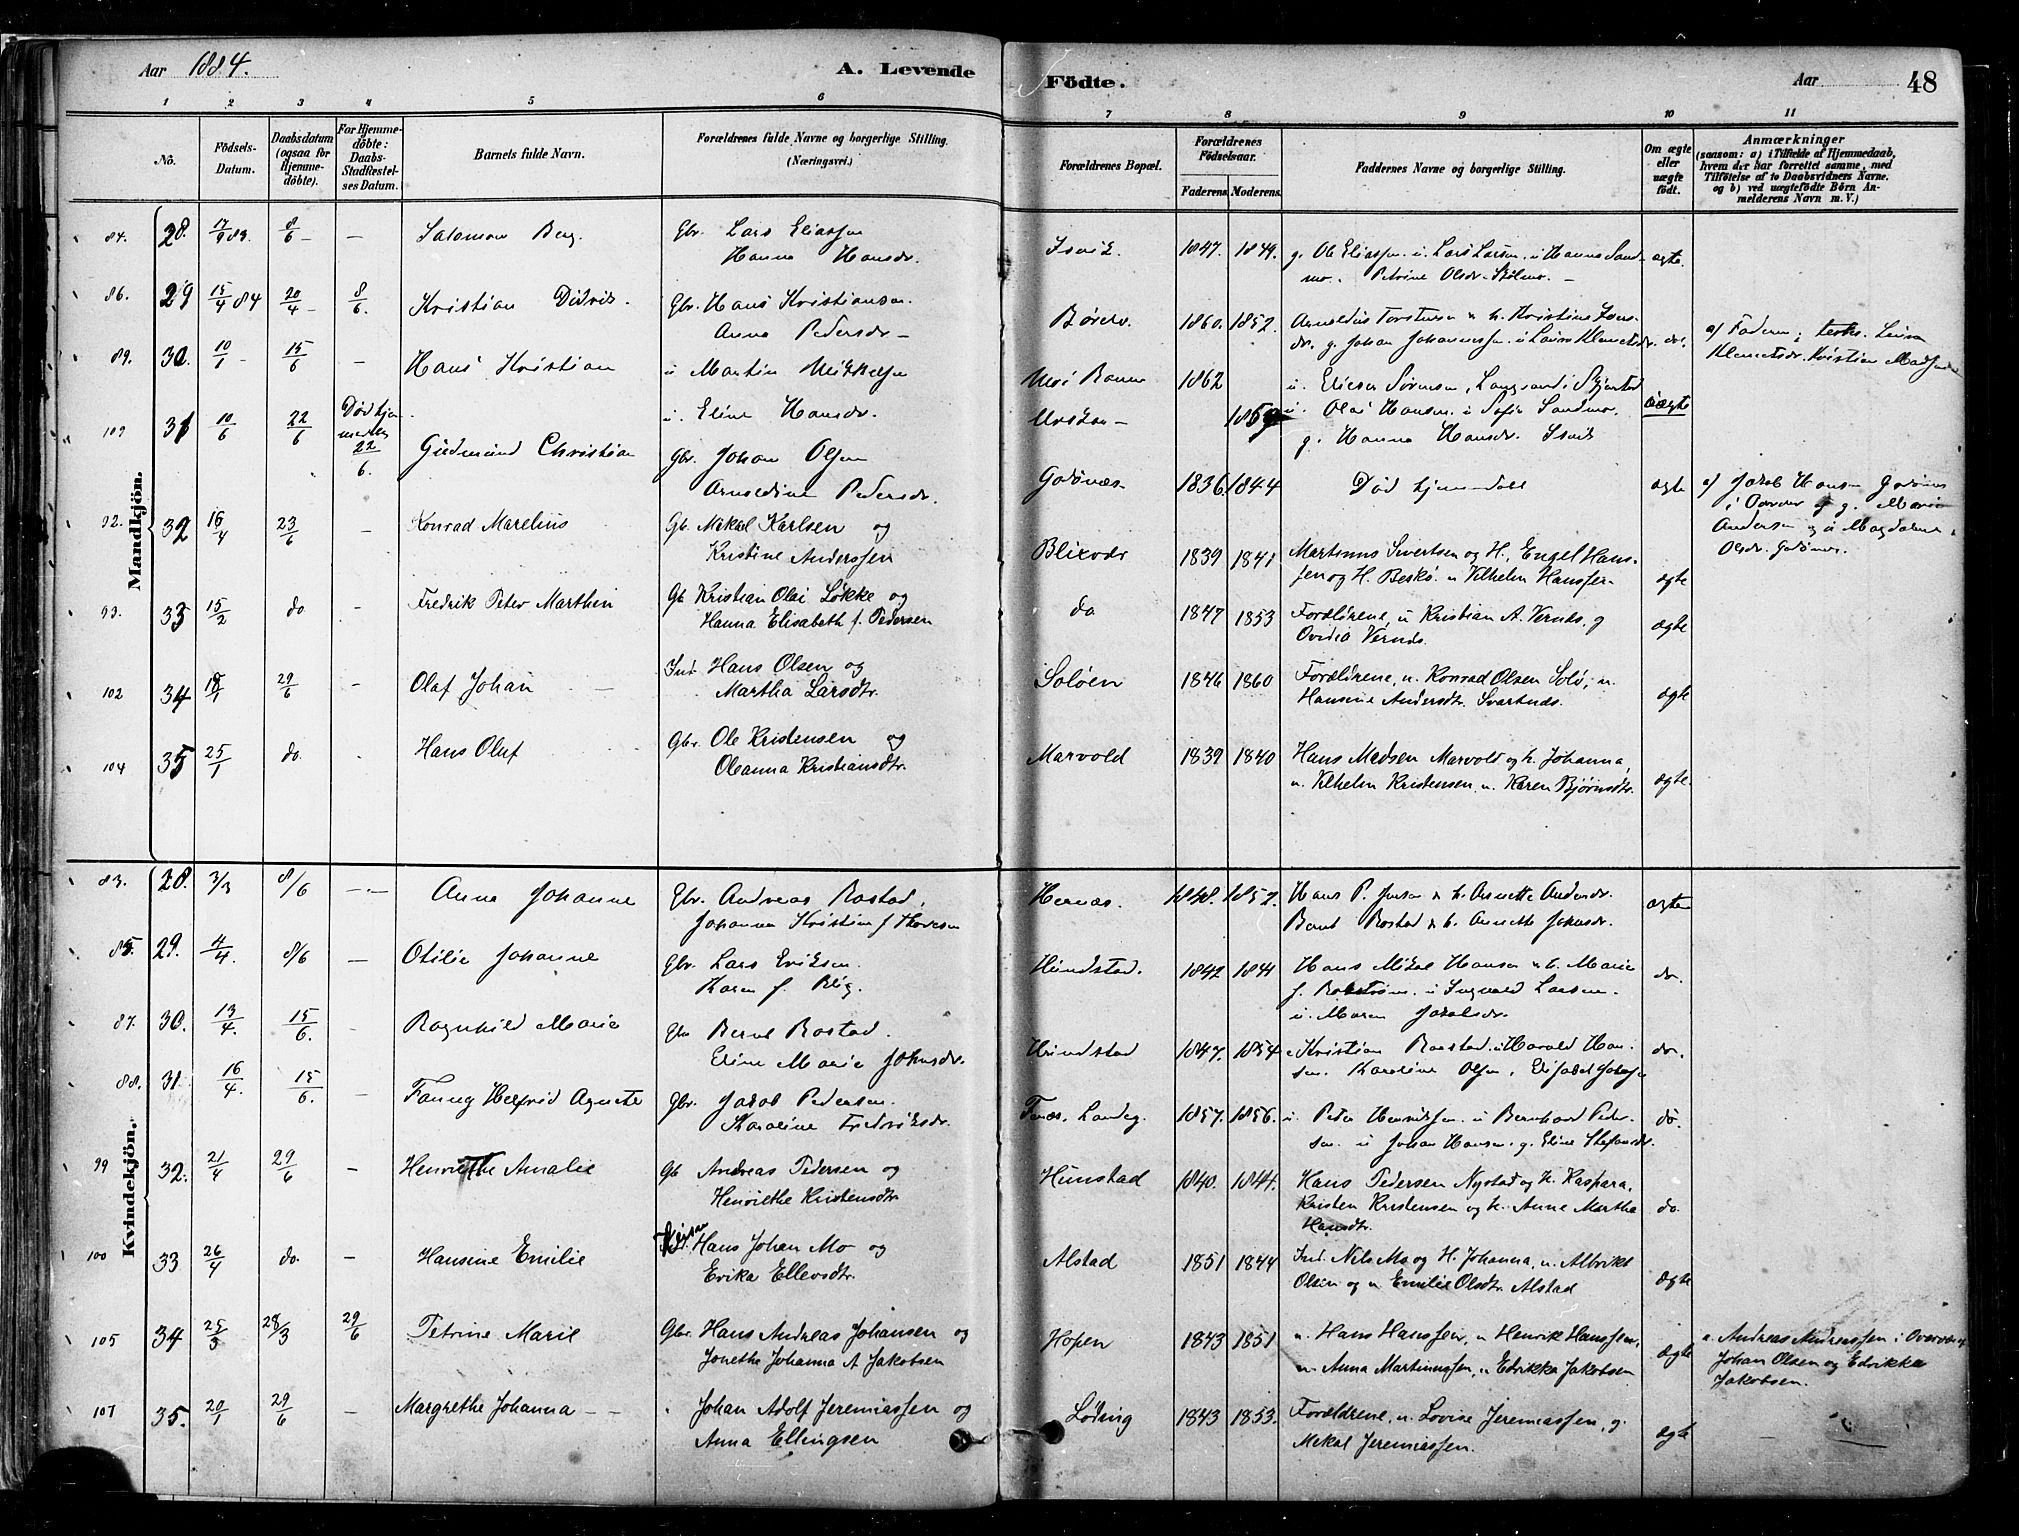 Aar 1884.
A. Levende
Födte.
Aar
48
1 2 3 4 5 6 7 8 9 10 11
No.
Födsels-Datum.
Daabsdatum (ogsaa for Hjemme-döbte).
For Hjemme-döbte: Daabs-Stadfæstel-ses Datum.
Barnets fulde Navn.
Forældrenes fulde Navne og borgerlige Stilling.
(Næringsvei.)
Forældrenes Bopæl.
Forældrenes Födselsaar.
Faderens. Moderens.
Faddernes Navne og borgerlige Stilling.
Om ægte eller uægte födt.
Anmærkninger
(saasom: a) i Tilfælde af Hjemmedaab, hvem der har forrettet samme, med Tilföielse af to Daabsvidners Navne. og b) ved uægtefödte Börn An-melderens Navn m. V.)
Mandkjön.
84. 28. 17/9 83. 8/6 - - Salomon Berg Gbr. Lars Eliassen
Hanna Hansdr. 1847. 1849. g. Ole Eliassen u. Lars Larsen u Hanna Sand-
mo. Petrine Olsdr. ægte.
86. 29 15/4 84 20/4 - 8/6 Kristian Didrik. Gbr. Hans Kristiansen
Anna Pedersdr - 1860. 1852. Arnoldus Torstensen & h. Kristine
dr. g. Johan Johannessen u Laura Klemetsdr. do.
a) Faderen; Laura
Klemetsdr. Kristian Madsen
89. 30. 10/1 - 15/6 - Hans Kristian u Martin Mikkelsen
1862 u. Sørensen,
109 31 10/6 22/6 Død hjem
22/6. Gudmund Christian u. Eline Hansdr.
u. Olai Hansen u Sofie Sandmo. uægte
g. Hanna Hansdr.
Gbr. Johan Olsen
Arnoldine Pedersdr.
Godønes 1836. 1844 Død hjemdøbt ægte a) Jakob Hansen Godønes
Andersen og u Magdalena
Olsdr. Godønes.
92. 32 16/4 23/6 - Konrad Marelius Gb. Mekal Karlsen og
Kristine Anderssen
Blixvær 1839 1841 Martinus Sivertsen og H., Engel Hans-
sen og H. Beskø. u Vilhelm Hanssen ægte
93. 33 15/2 do - Fredrik Peter Marthin Gb Kristian Olai Løkke og
Hanna Elisabeth f. Pedersen
do 1847 1853 Forældrene, u Kristian A. Vernes. g
Ovidia Vernes. ægte
102 34 29/6 - Olaf Johan - Ind. Hans Olsen og
Martha Larsdtr.
Soløen 1846 1860 Forældrene, u. Konrad Olsen Solø, u.
Hansine Andersdtr. Svartnes. ægte
104 35 25/1 do. Hans Oluf Gbr. Ole Kristensen og
Oleanna Kristiansdtr.
Marvold 1839 1840 Hans Madsen Marvold og h. Johanna,
u. Vilhelm Kristensen, u. Karen Bjørnsdtr. ægte.
Kvindekjön.
83. 28. 3/3 8/6 - - Anna Johanne Gbr. Andreas Rostad,
Johanna Kristine f Thoresen
Hernæs. 1848. 1852. Hans P. Jensen & h. Arnette Andersdr.
Bernt Rostad & h. Annette Johnsdr. ægte
85. 29. 4/4. 8/6 - Otilie Johanne Gbr. Lars Eriksen.
Karen f. Blix.
Hundstad. 1842 1844 Hans Mikal Hansen & h. Marie
f. u Ingvald Larsen.
u. Maren Jakobsdr. do.
87. 30. 13/4. 15/6. - Ragnhild Marie Gbr Bernt Rostad.
Eline Marie Johnsdr.
Hundstad 1847. 1854 Kristian Rostad. u Harald Han-
sen. Karoline Olsen, Elisabet do.
88. 31 16/4 15/6. - Fanny Helfrid Agnete Gbr. Jakob Pedersen
Karoline Fredriksdr.
Landeg. 1857. 1856. u. Peder Henriksen u Bernhard Peder-
sen u Johan Hansen. g. Eline Stefansdr. do.
99 32. 21/4 29/6 - Henriethe Amalie Gb Andreas Pedersen og
Henriethe Kristensdtr
Hunstad 1840. 1844. Hans Pedersen Nystad og h. Kaspara,
Kristen Kristensen og h. Anne Martha
Hansdtr. do
100 33 26/4 do. - Hansine Emilie Hans Johan Mo og
Erika Ellevsdtr.
Alstad 1851 1844 Ind. Nils Mo og H. Johanna, u. Albrikt
Olsen og u Emilie Olsdtr. Alstad ægte
105 34 25/3 28/3 29/6 Petrine Marie Gbr. Hans Andreas Johansen og
Jonethe Johanna A Jakobsen
Hopen 1843 1851 u. Hans Hanssen, u Henrik Hanssen,
u. Anna Martinussen, u Edrikka Jakobsen ægte
a. Andreas Andreassen i
Johan Olsen og Edrikka
Jakobsen.
107 35. 20/1 29/6 - Margrethe Johanna - - Johan Adolf Jeremiassen og
Anna Ellingsen
Løding 1843 1853. Forældrene, u. Lovise Jeremiassen, g.
Mekal Jeremiassen. ægte